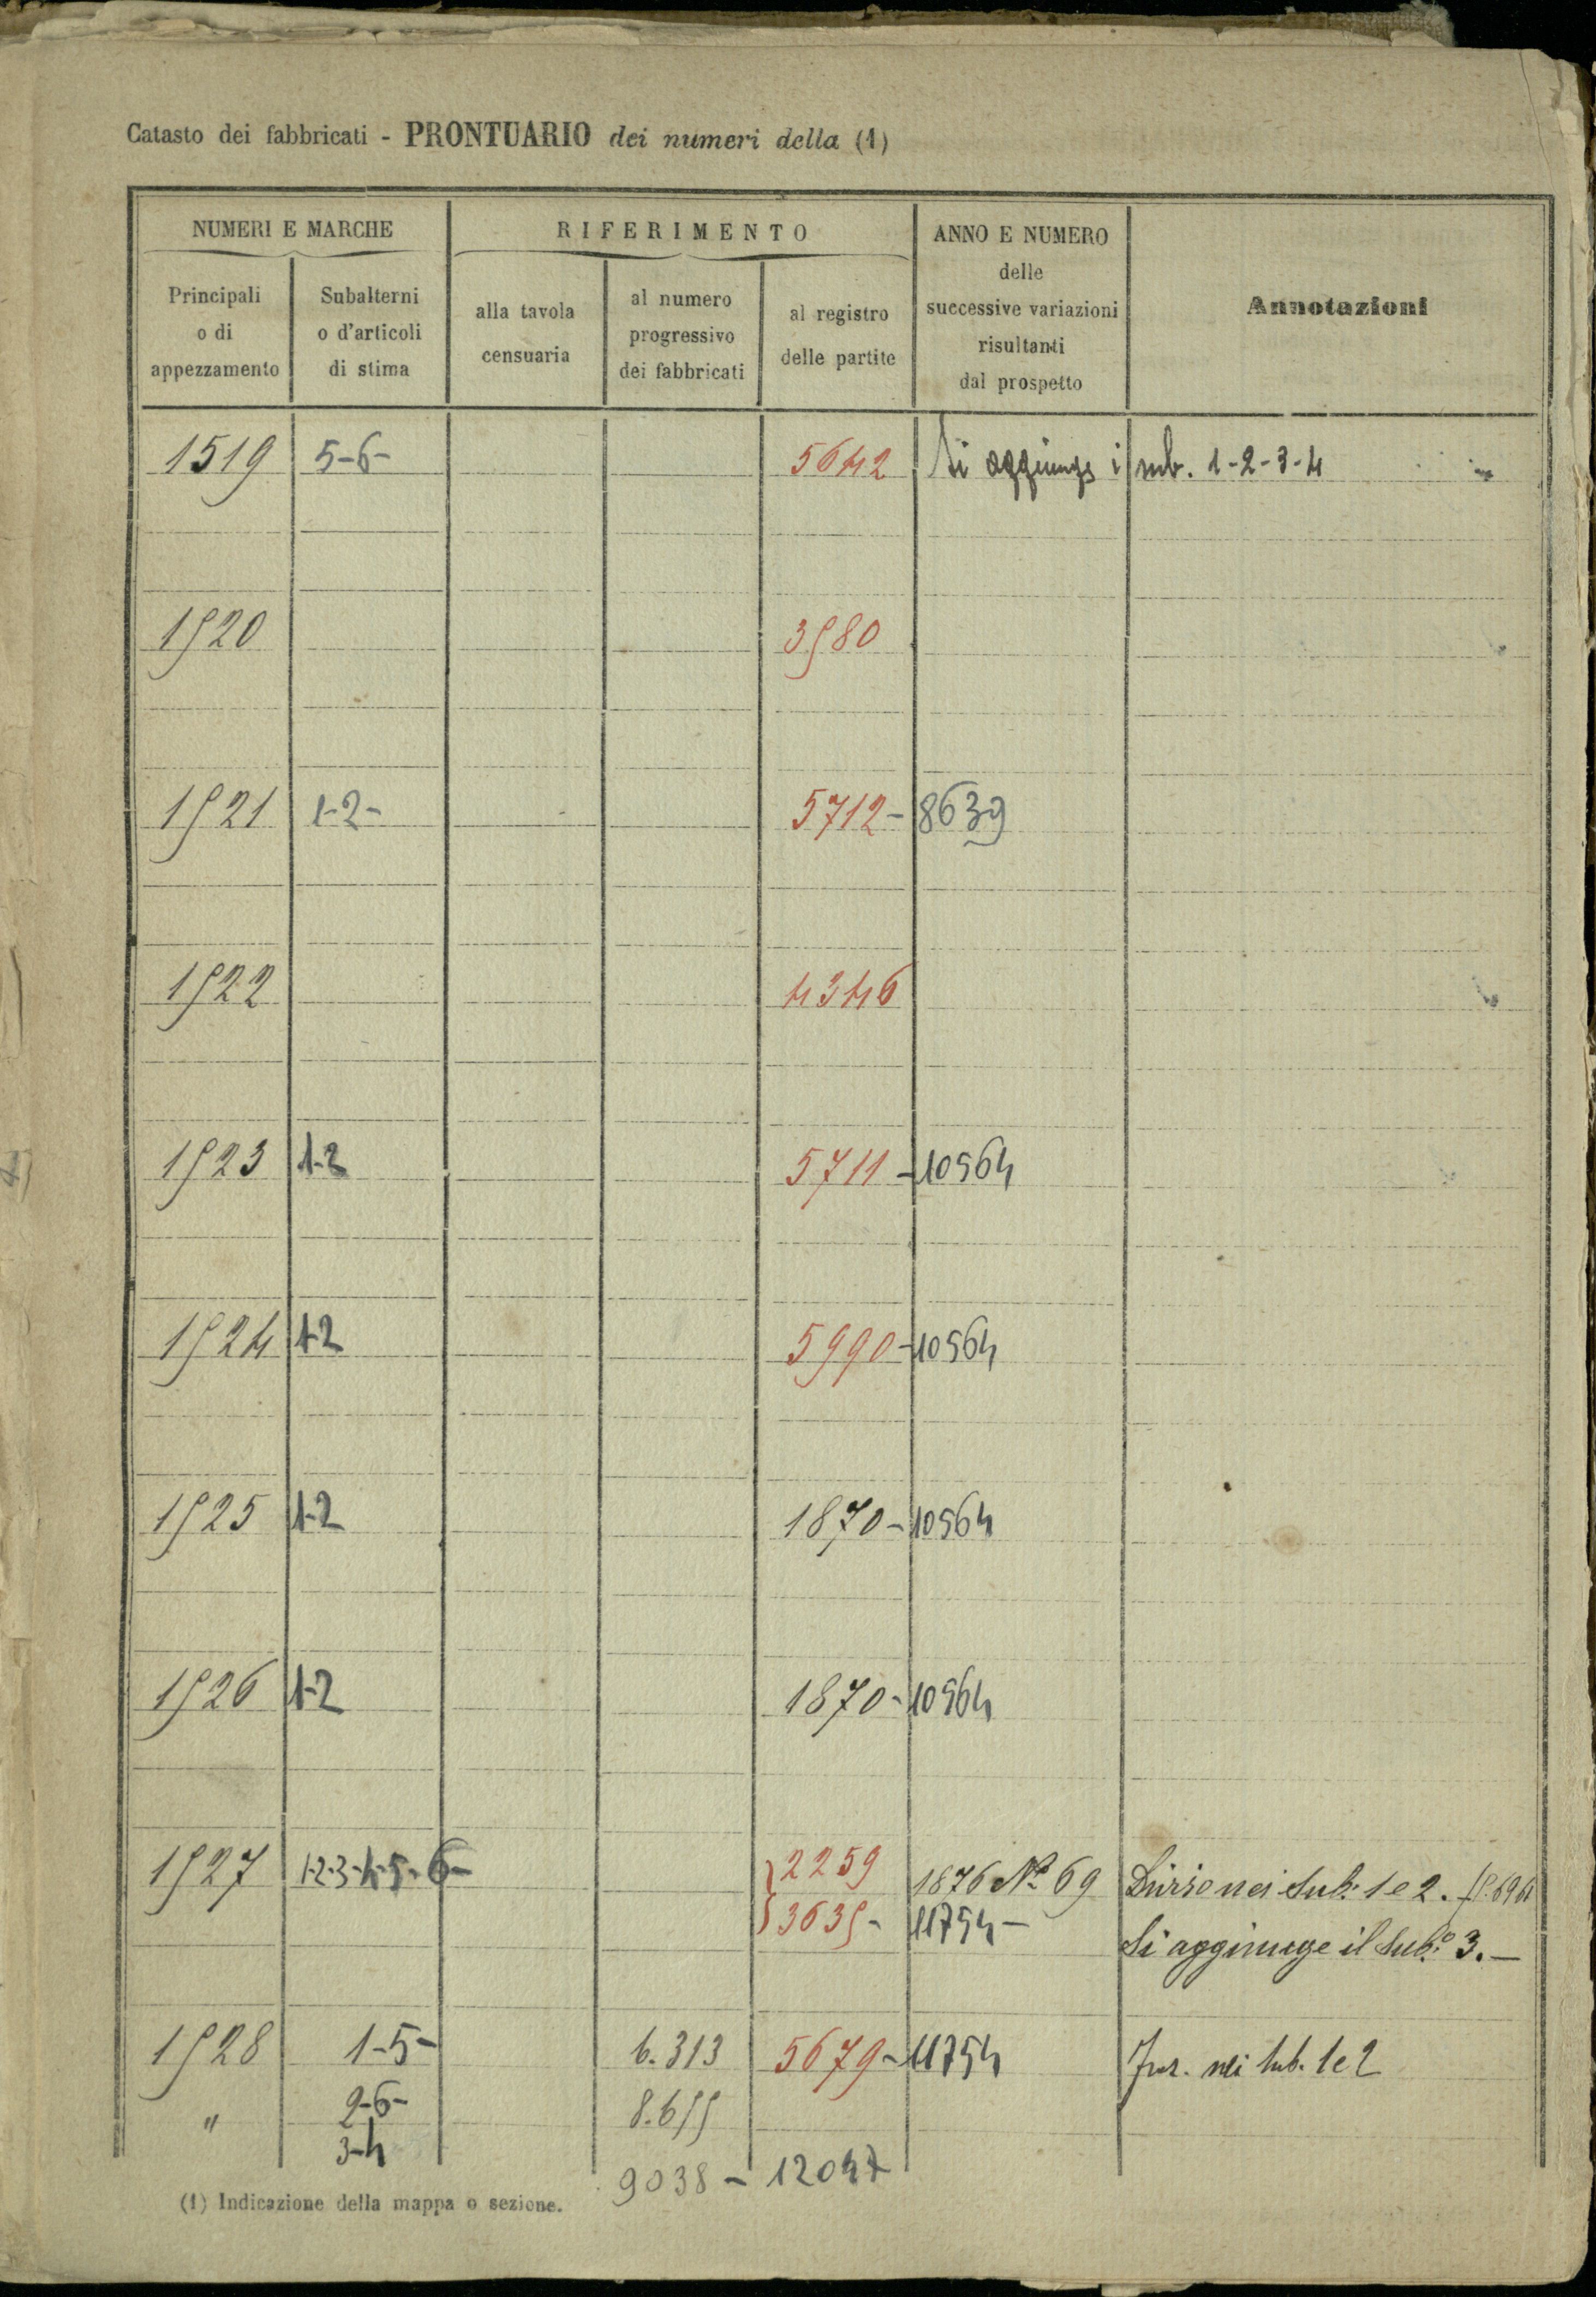 Catasto dei fabbricati - PRONTUARIO dei numeri della (1)
NUMERI E MARCHE
RIFERIMENTO
ANNO E NUMERO
delle
successive variazioni
risultanti
dal prospetto
Annotazioni
Principali
o di
appezzamento
Subalterni
o d'articoli
di stima
alla tavola
censuaria
al numero
progressivo
dei fabbricati
al registro
delle partite
1519 5-6- 5642 Si aggiungs i sub. 1-2-3-4
1520 3580
1521 1-2- 5712- 8639
1522 4346
1523 1-2 5711 - 10564
1524 1-2 5990 - 10564
1525 1-2 1870 - 10564
1526 1-2 1870 - 10564
1527 1-2-3-4-5-6- 2259 1876 N.o 69 Diviso nei Sub.i 1 e 2.
3635 - 11754 -
Si aggiunge il Sub.o 3. —
1528 1-5- 6.313 5679 - 11754 nei sub. 1 e 2
" 2-6- 8.655
3-4
9038 - 12047
(1) Indicazione della mappa o sezione.